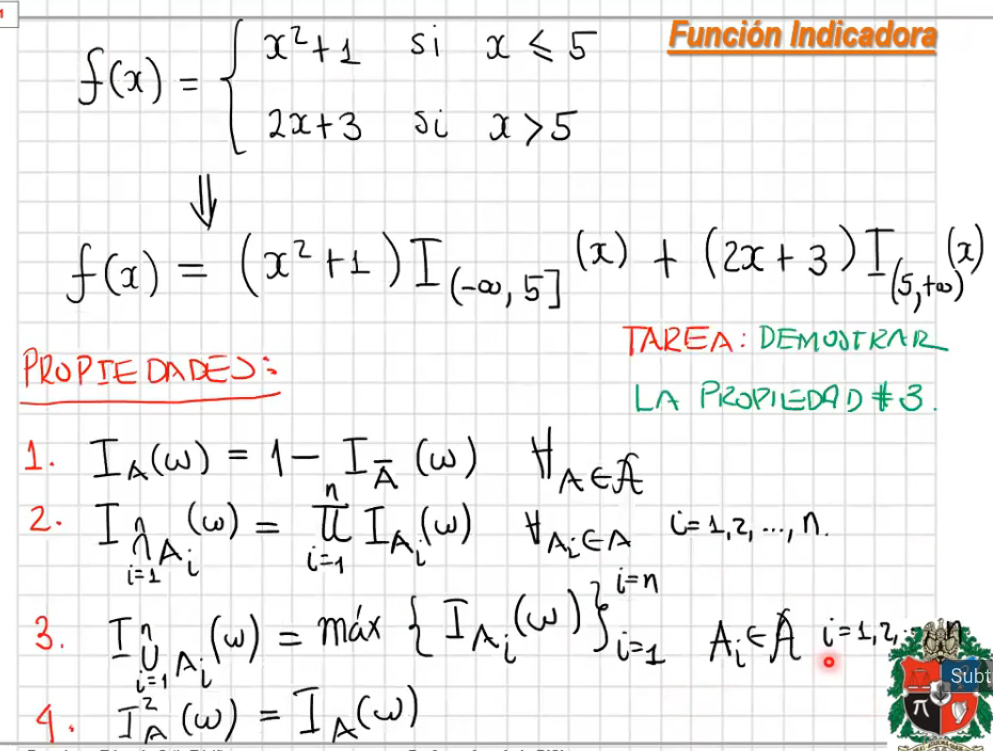 1
Función Indicadora
f(x) = { x²+1 si x ≤ 5
2x+3 si x > 5
⇓
f(x) = (x²+1) I_(-∞, 5] (x) + (2x+3) I_(5,+∞) (x)
TAREA: DEMOSTRAR
LA PROPIEDAD #3.
PROPIEDADES:
1. I_A(ω) = 1 - I_Ā(ω) ∀ A∈𝒜
2. I_{⋂_{i=1}^{n} A_i}(ω) = ∏_{i=1}^{n} I_{A_i}(ω) ∀ A_i∈A i=1,2,...,n.
3. I_{⋃_{i=1}^{n} A_i}(ω) = máx { I_{A_i}(ω) }_{i=1}^{i=n} A_i∈𝒜 i=1,2,...n
Subt
π
4. I²_A(ω) = I_A(ω)